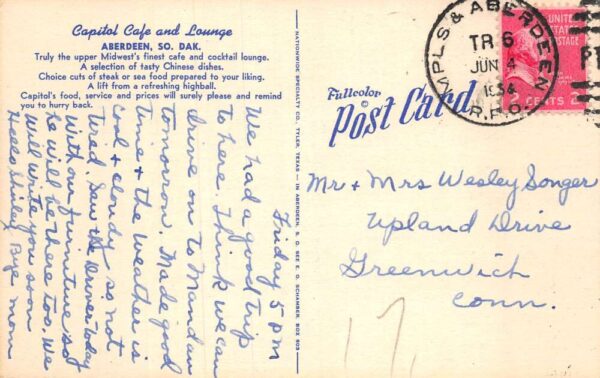 Capitol Cafe and Lounge
ABERDEEN, SO. DAK.
Truly the upper Midwest's finest cafe and cocktail lounge.
A selection of tasty Chinese dishes.
Choice cuts of steak or sea food prepared to your liking.
A lift from a refreshing highball.
Capitol's food, service and prices will surely please and remind
you to hurry back.
Friday 5 pm
We had a good trip
to here. Think we can
drive on to Mandan
tomorrow. Made good
time & the weather is
cool & cloudy so not
tired. Saw the Driver today
with our furniture so
he will be there too. We
will write you soon
Hello Shirley Bye mom
NATIONWIDE SPECIALTY CO., TYLER, TEXAS — IN ABERDEEN, S. D. SEE E. O. SCHAMBER, BOX 603
Fullcolor
Post Card
MPLS & ABERDEEN
TR 6
JUN 4
1954
R.P.O.
UNITED
STATES
POSTAGE
CENTS 2
Mr + Mrs Wesley Songer
Upland Drive
Greenwich
Conn.
17